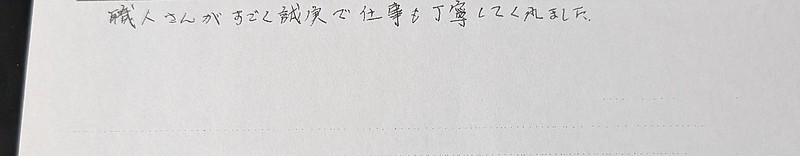 職人さんがすごく誠実で仕事も丁寧してくれました。